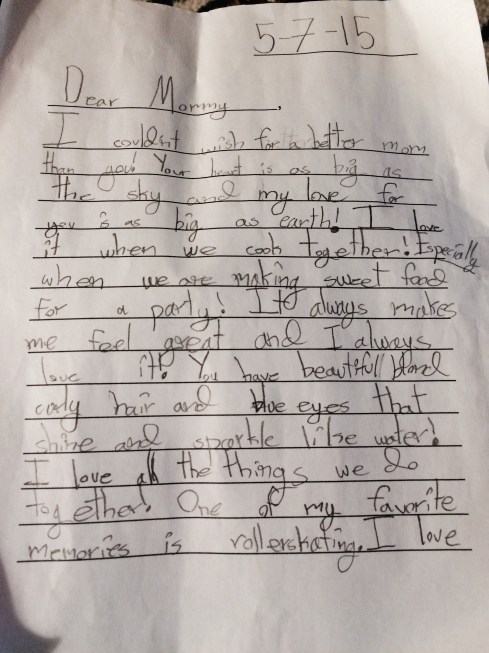 5-7-15
Dear Mommy,
I couldn't wish for a better mom
than you! Your heart is as big as
the sky and my love for
you is as big as earth! I love
it when we cook together! Especially
when we are making sweet food
for a party! It always makes
me feel great and I always
love it! You have beautifull blond
curly hair and blue eyes that
shine and sparkle like water!
I love all the things we do
together! One of my favorite
memories is rollerskating. I love